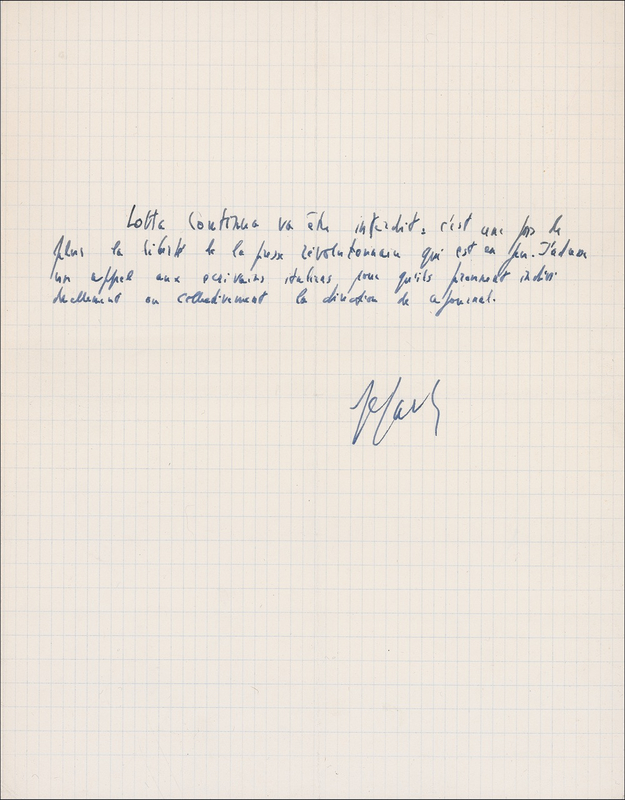 Lotta Continua va être interdit, c'est une fois de
plus la liberté de la presse révolutionnaire qui est en jeu. J'adresse
un appel aux écrivains italiens pour qu'ils prennent indivi
duellement ou collectivement la direction de ce journal.